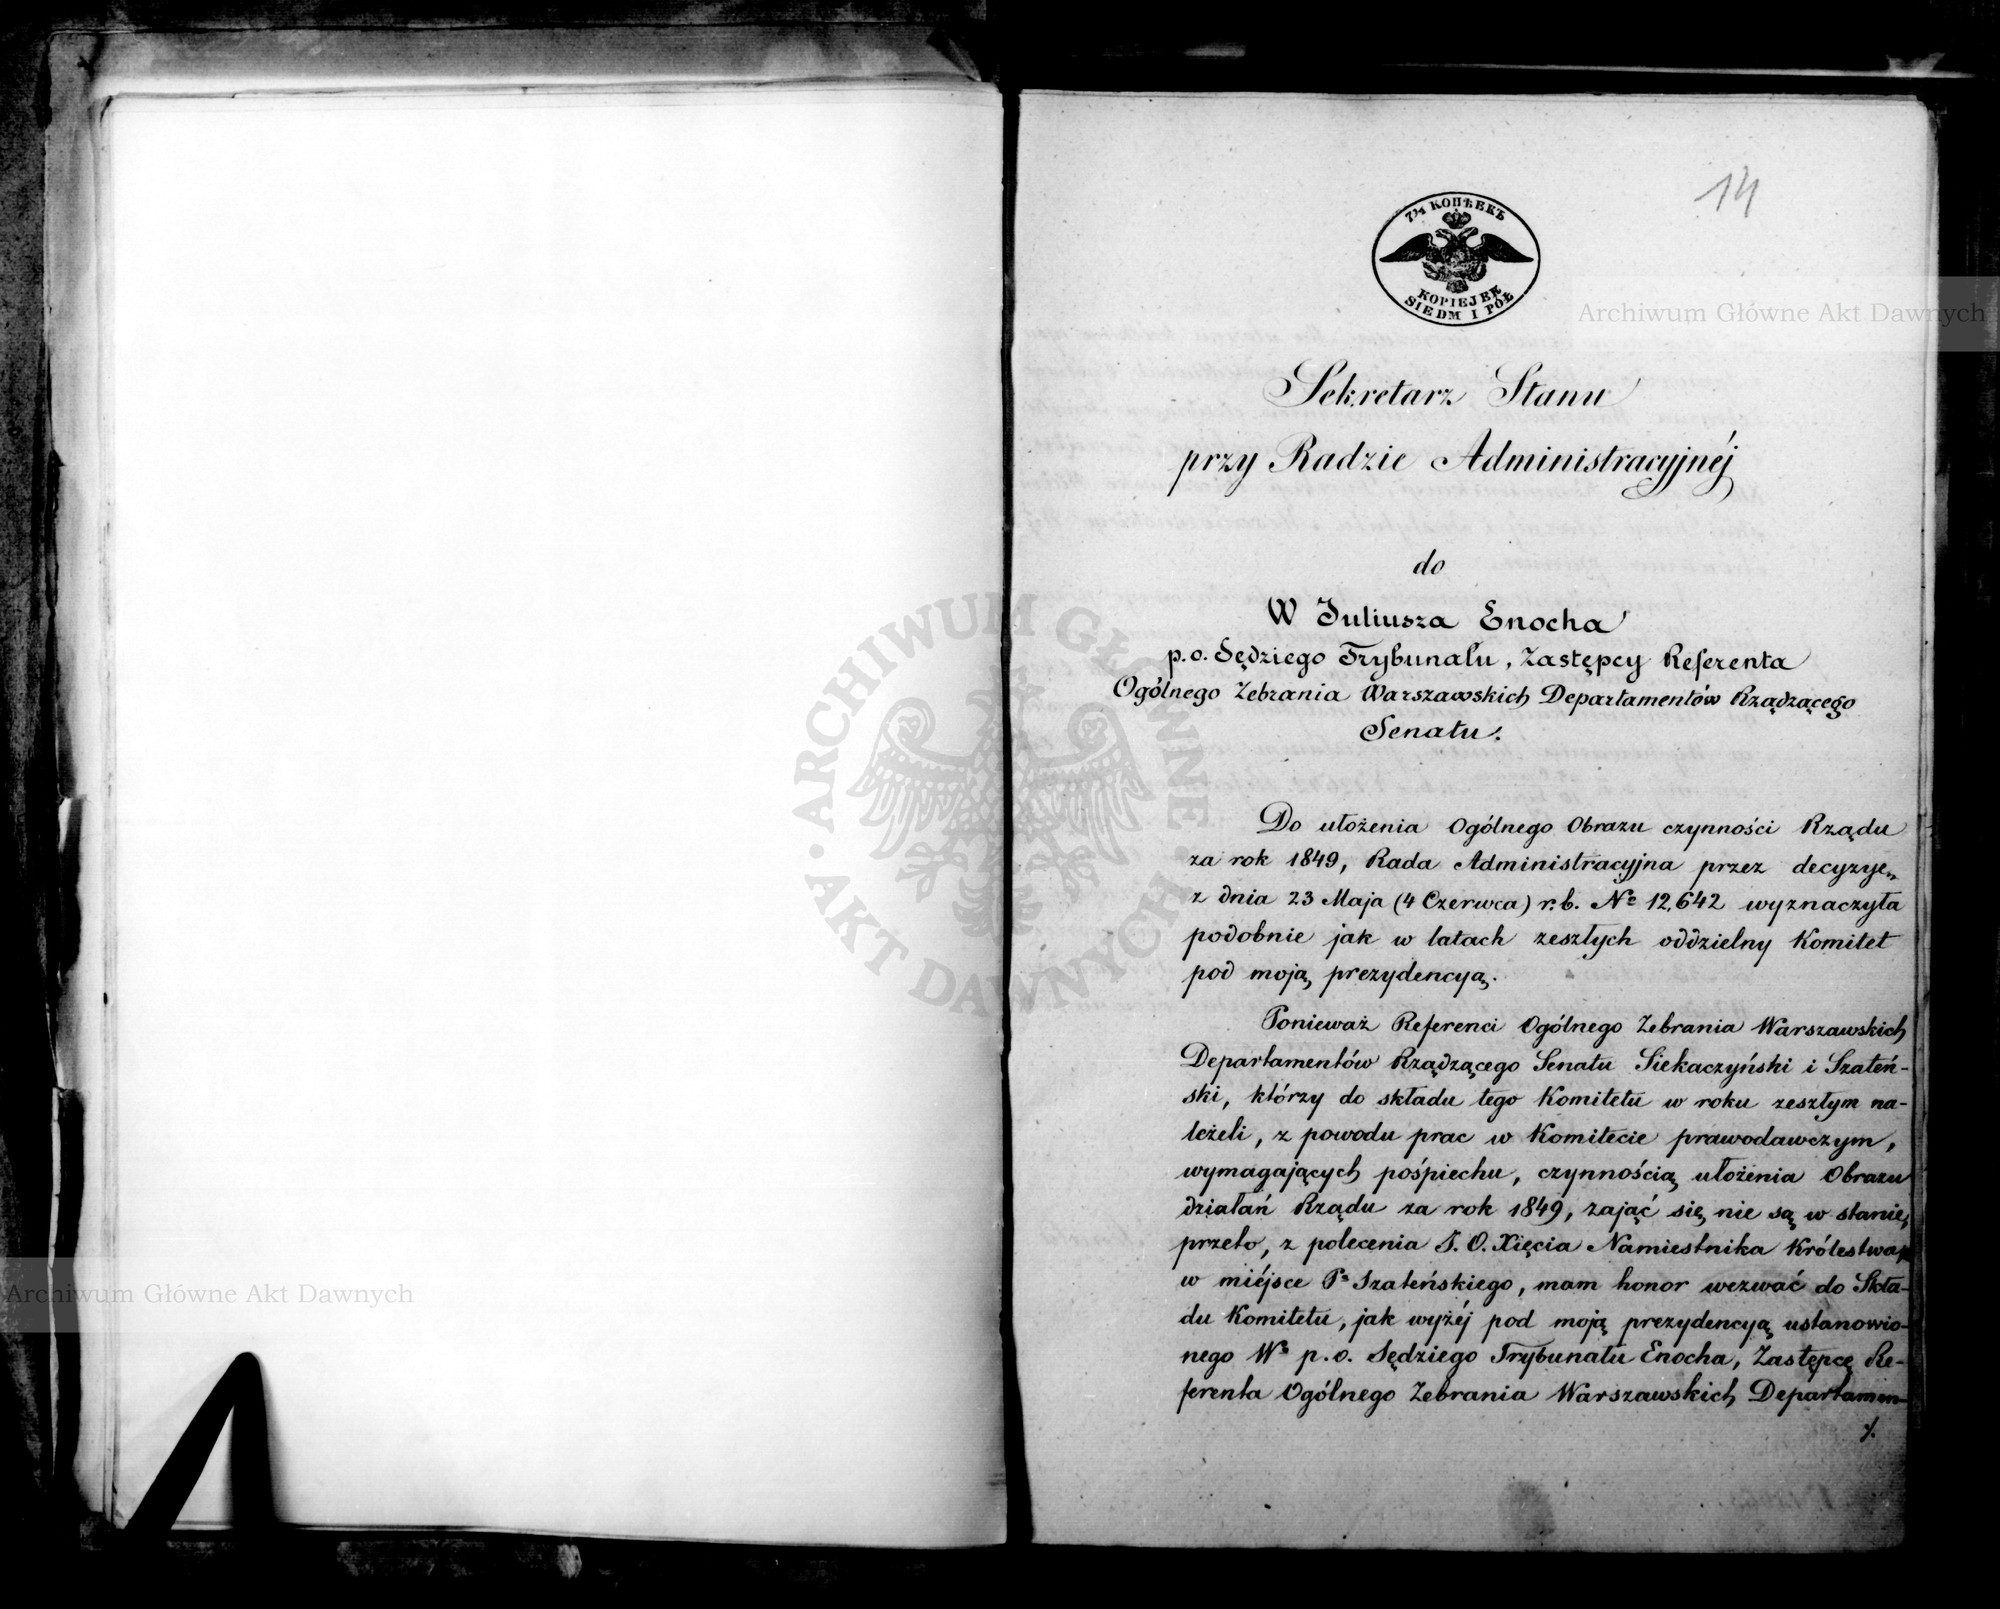 14
7½ КОПѢЕКЪ
KOPIEJEK
SIEDM I PÓŁ
Archiwum Główne Akt Dawnych
Sekretarz Stanu
przy Radzie Administracyjnéj
do
W Juliusza Enocha
p.o. Sędziego Trybunału, Zastępcy Referenta
Ogólnego Zebrania Warszawskich Departamentów Rządzącego
Senatu.
Do ułożenia Ogólnego Obrazu czynności Rządu
za rok 1849, Rada Administracyjna przez decyzyę
z dnia 23 Maja (4 Czerwca) r.b. No 12,642 wyznaczyła
podobnie jak w latach zeszłych oddzielny Komitet
pod moją prezydencyą.
Ponieważ Referenci Ogólnego Zebrania Warszawskich
Departamentów Rządzącego Senatu Siekaczyński i Szateń-
ski, którzy do składu tego Komitetu w roku zeszłym na-
leżeli, z powodu prac w Komitecie prawodawczym,
wymagających pośpiechu, czynnością ułożenia Obrazu
działań Rządu za rok 1849, zająć się nie są w stanie,
przeto, z polecenia J. O. Xięcia Namiestnika Królestwa,
w miéjsce Pa Szateńskiego, mam honor wezwać do Skła-
du Komitetu, jak wyżéj pod moją prezydencyą ustanowio-
nego Wo p.o. Sędziego Trybunału Enocha, Zastępcę Re-
ferenta Ogólnego Zebrania Warszawskich Departamen-
./.
Archiwum Główne Akt Dawnych
ARCHIWUM GŁÓWNE · AKT DAWNYCH ·